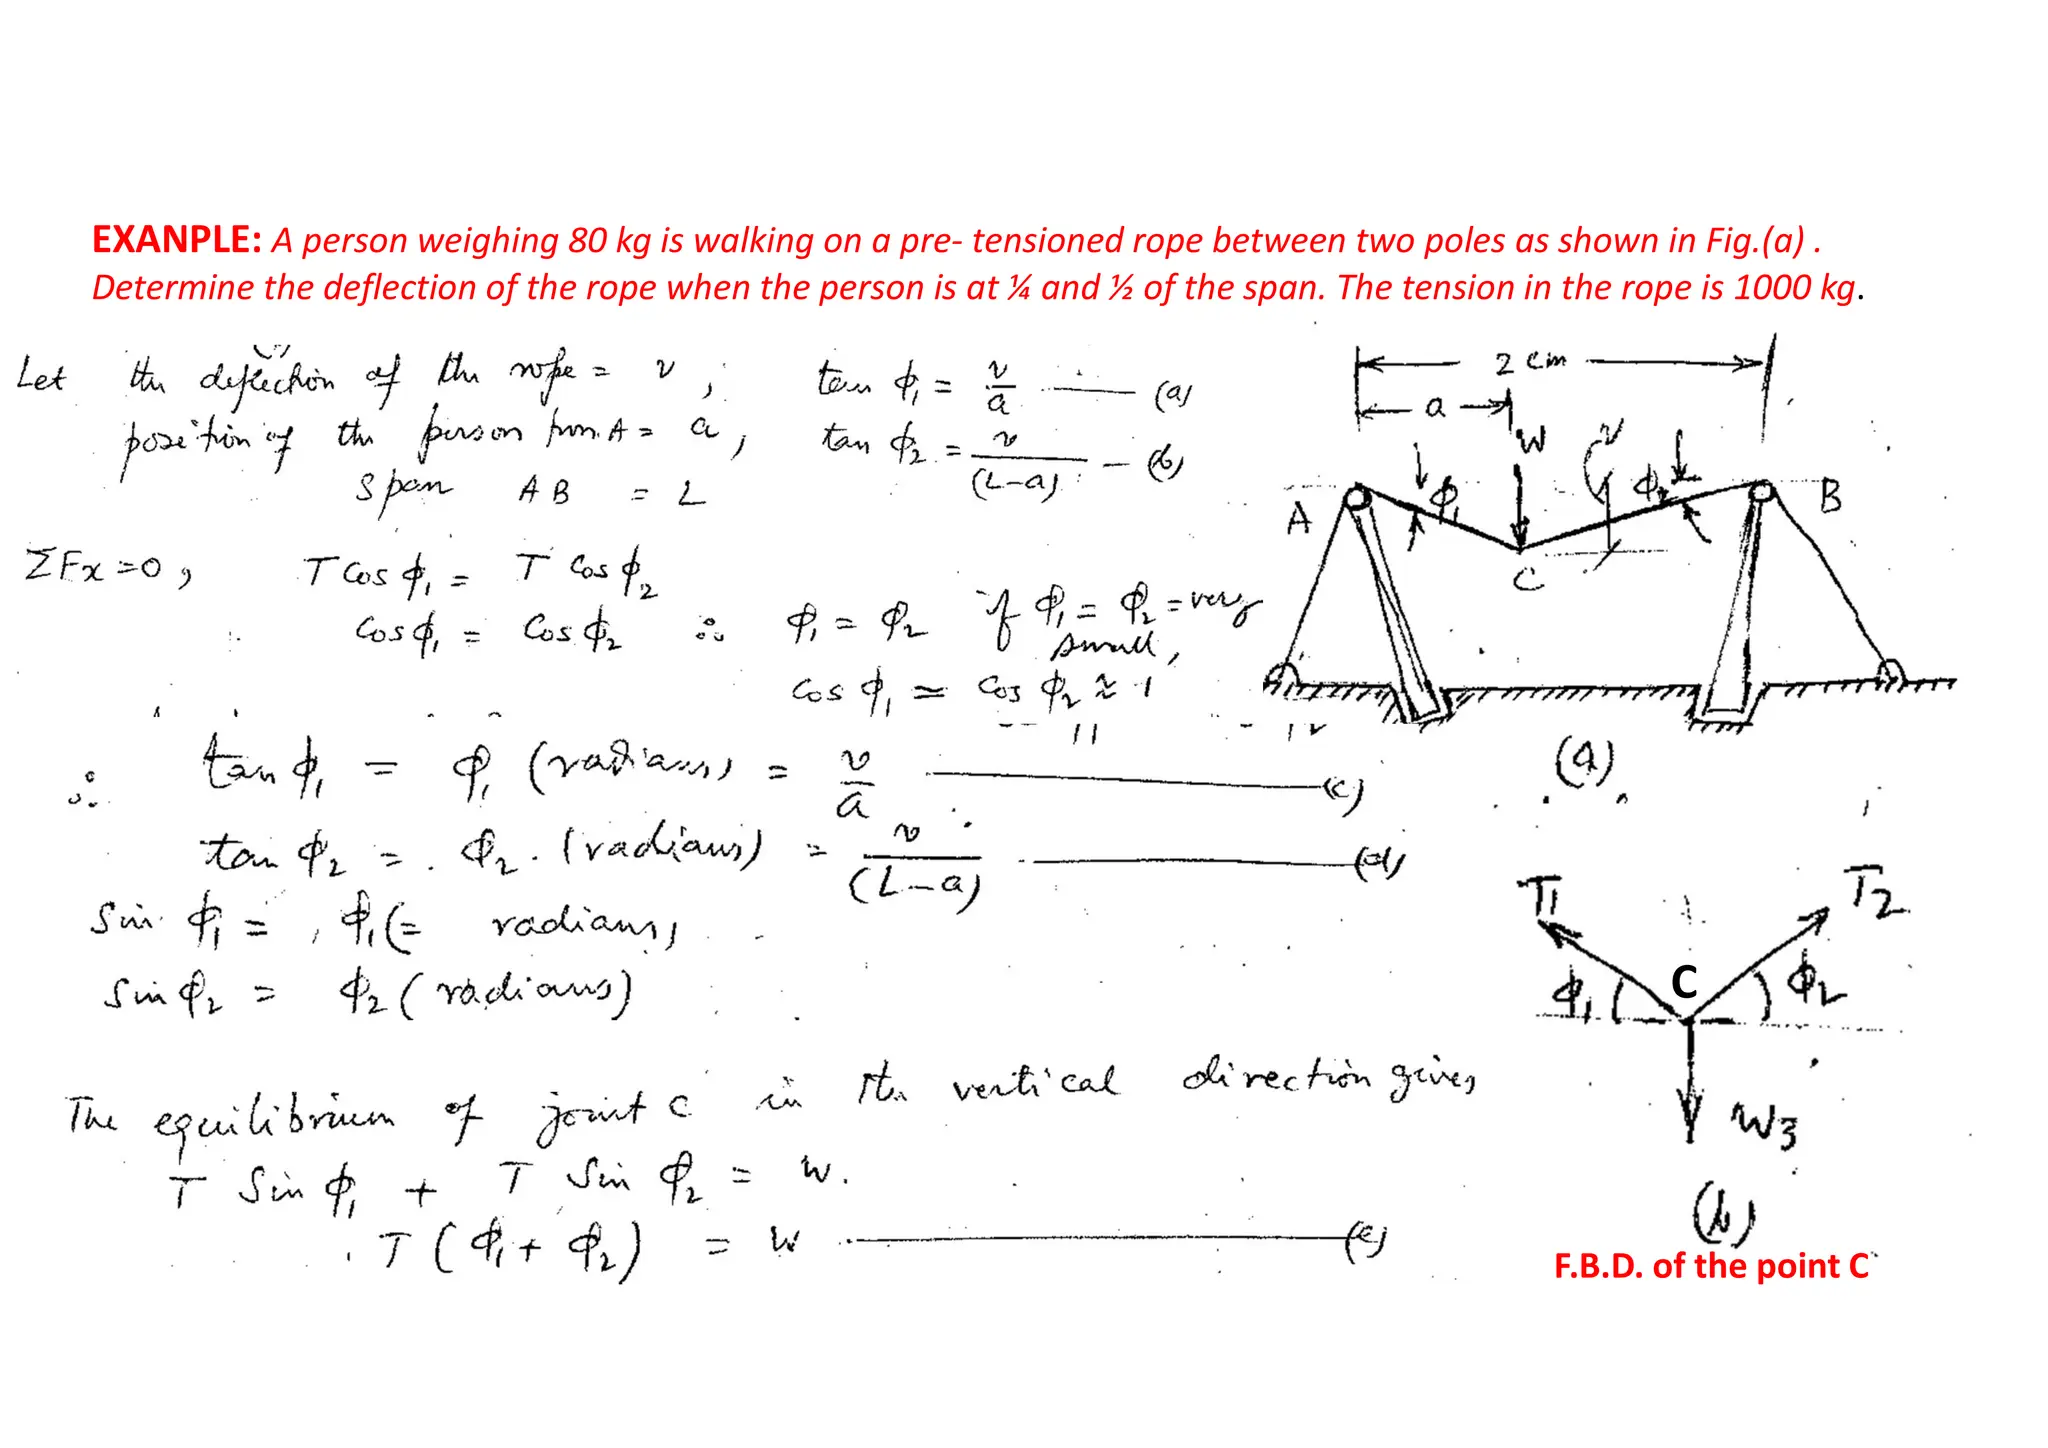 EXANPLE: A person weighing 80 kg is walking on a pre- tensioned rope between two poles as shown in Fig.(a) .
Determine the deflection of the rope when the person is at ¼ and ½ of the span. The tension in the rope is 1000 kg.
Let the deflection of the rope = v ,
position of the person from A = a ,
span AB = L
tan ϕ₁ = v/a (a)
tan ϕ₂ = v/(L-a) (b)
ΣFx = 0 , T Cos ϕ₁ = T Cos ϕ₂
Cos ϕ₁ = Cos ϕ₂ ∴ ϕ₁ = ϕ₂ if ϕ₁ = ϕ₂ = very
small,
Cos ϕ₁ ≃ Cos ϕ₂ ≈ 1
∴ tan ϕ₁ = ϕ₁ (radians) = v/a (c)
tan ϕ₂ = ϕ₂ (radians) = v/(L-a) (d)
Sin ϕ₁ = ϕ₁ (= radians)
Sin ϕ₂ = ϕ₂ (radians)
The equilibrium of joint C in the vertical direction gives,
T Sin ϕ₁ + T Sin ϕ₂ = W.
T (ϕ₁ + ϕ₂) = W (e)
a
W
v
ϕ₁
ϕ₂
A
B
C
(a)
T₁
T₂
C
ϕ₁
ϕ₂
W3
(b)
F.B.D. of the point C